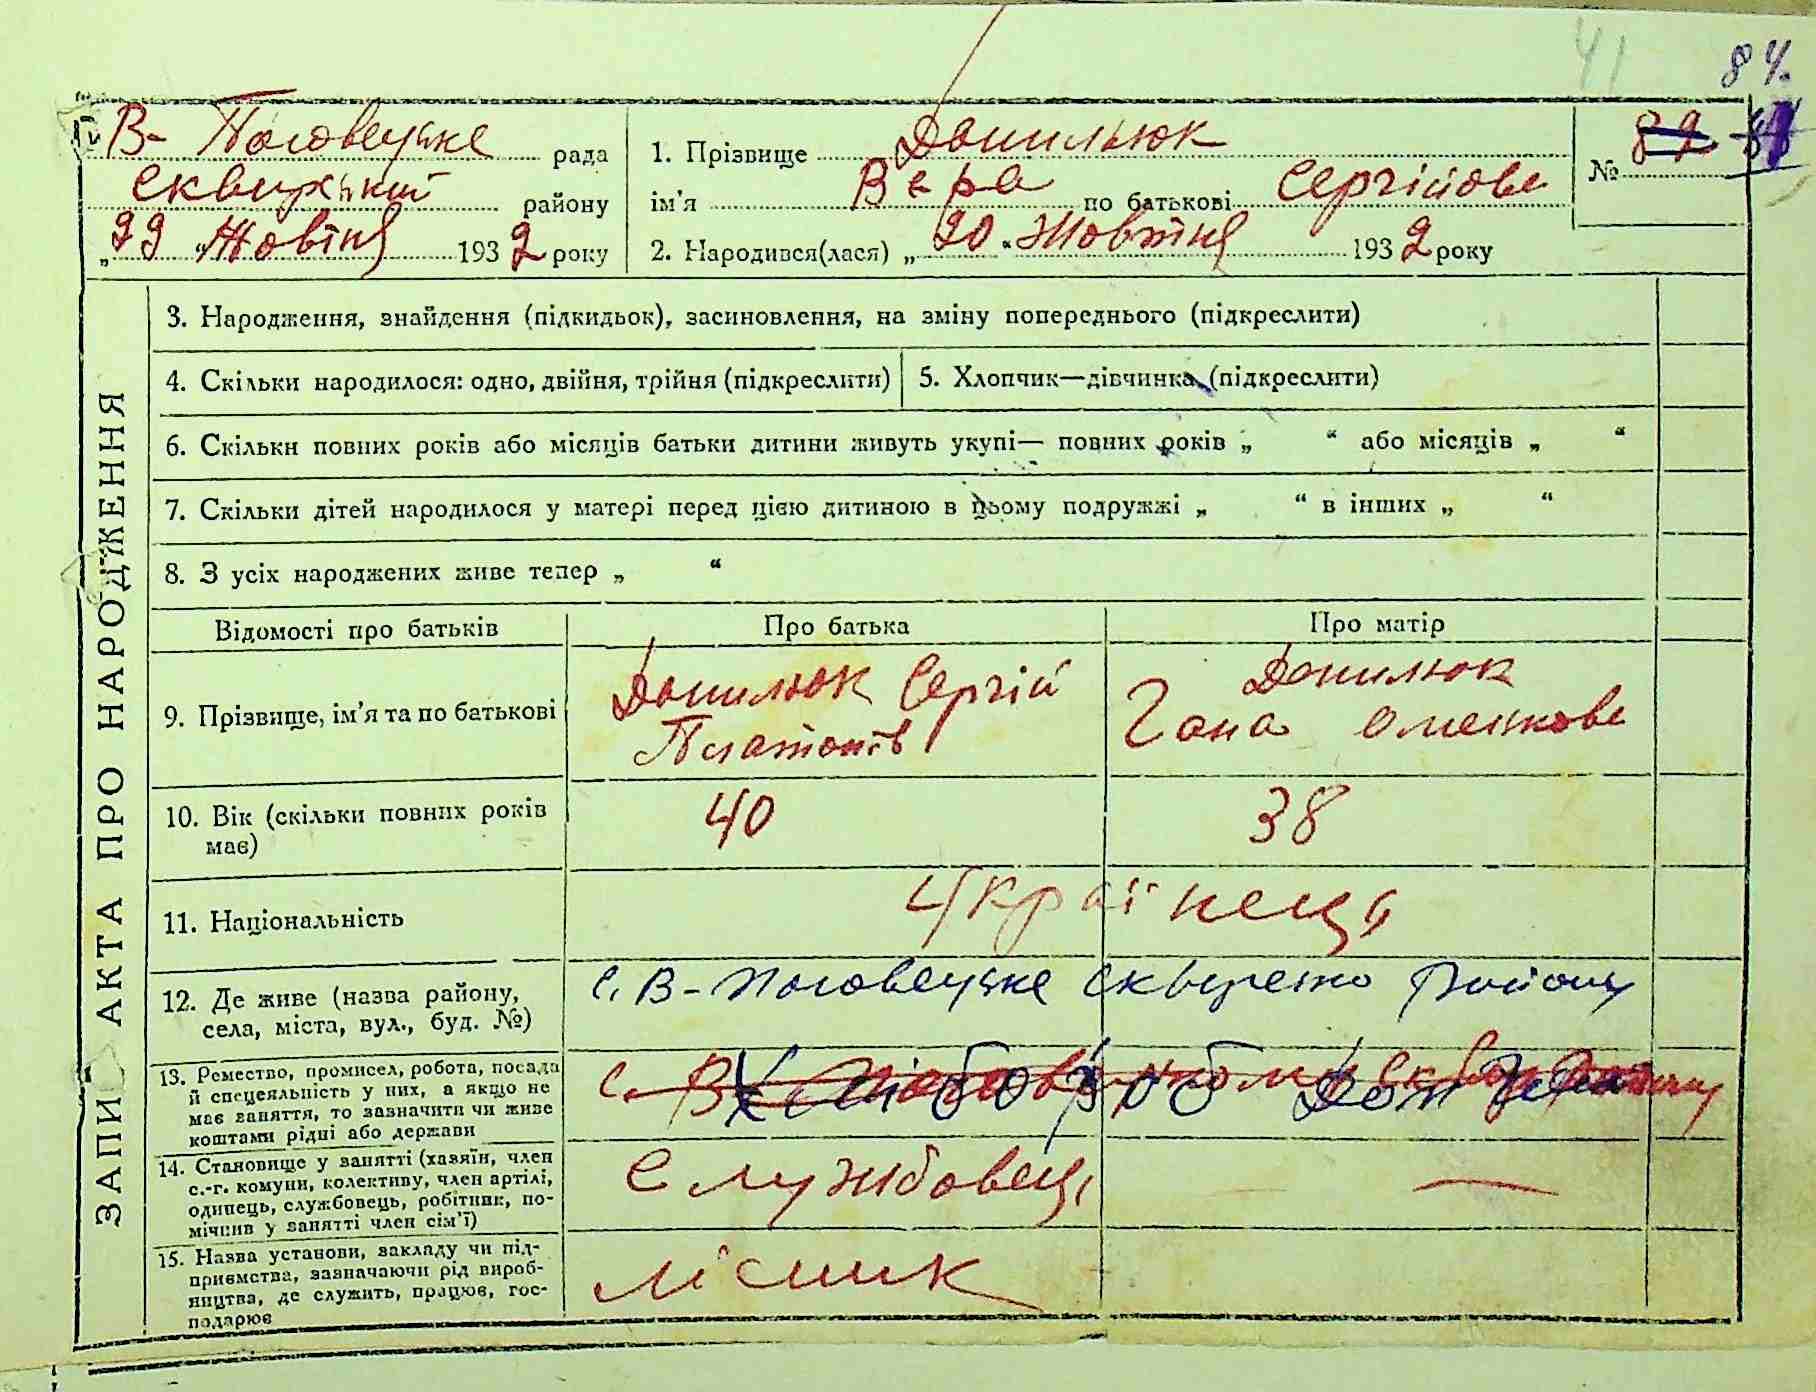 41
84.
В- Половецьке рада
Сквирський району
„29 „ Жовтня 1932 року
1. Прізвище Данильюк
ім'я Вера по батькові Сергійове
2. Народився(лася) „20 “ Жовтня 1932 року
№ 82
ЗАПИС АКТА ПРО НАРОДЖЕННЯ
3. Народження, знайдення (підкидьок), засиновлення, на зміну попереднього (підкреслити)
4. Скільки народилося: одно, двійня, трійня (підкреслити)
5. Хлопчик—дівчинка (підкреслити)
6. Скільки повних років або місяців батьки дитини живуть укупі— повних років „ “ або місяців „ “
7. Скільки дітей народилося у матері перед цією дитиною в цьому подружжі „ “ в інших „ “
8. З усіх народжених живе тепер „ “
Відомості про батьків
Про батька
Про матір
9. Прізвище, ім'я та по батькові
Данилюк Сергій
Платонів
Данилюк
Гана
10. Вік (скільки повних років
має)
40
38
11. Національність
Українець
12. Де живе (назва району,
села, міста, вул., буд. №)
с. В-Половецьке Сквирського Району
13. Ремество, промисел, робота, посада
й спецеяльність у них, а якщо не
має заняття, то зазначити чи живе
коштами рідні або держави
с. В
14. Становище у занятті (хазяїн, член
с.-г. комуни, колективу, член артілі,
одинець, службовець, робітник, по-
мічнив у занятті член сім'ї)
Службовець
—
15. Назва установи, закладу чи під-
приємства, зазначаючи рід вироб-
ництва, де служить, працює, гос-
подарює
лісник